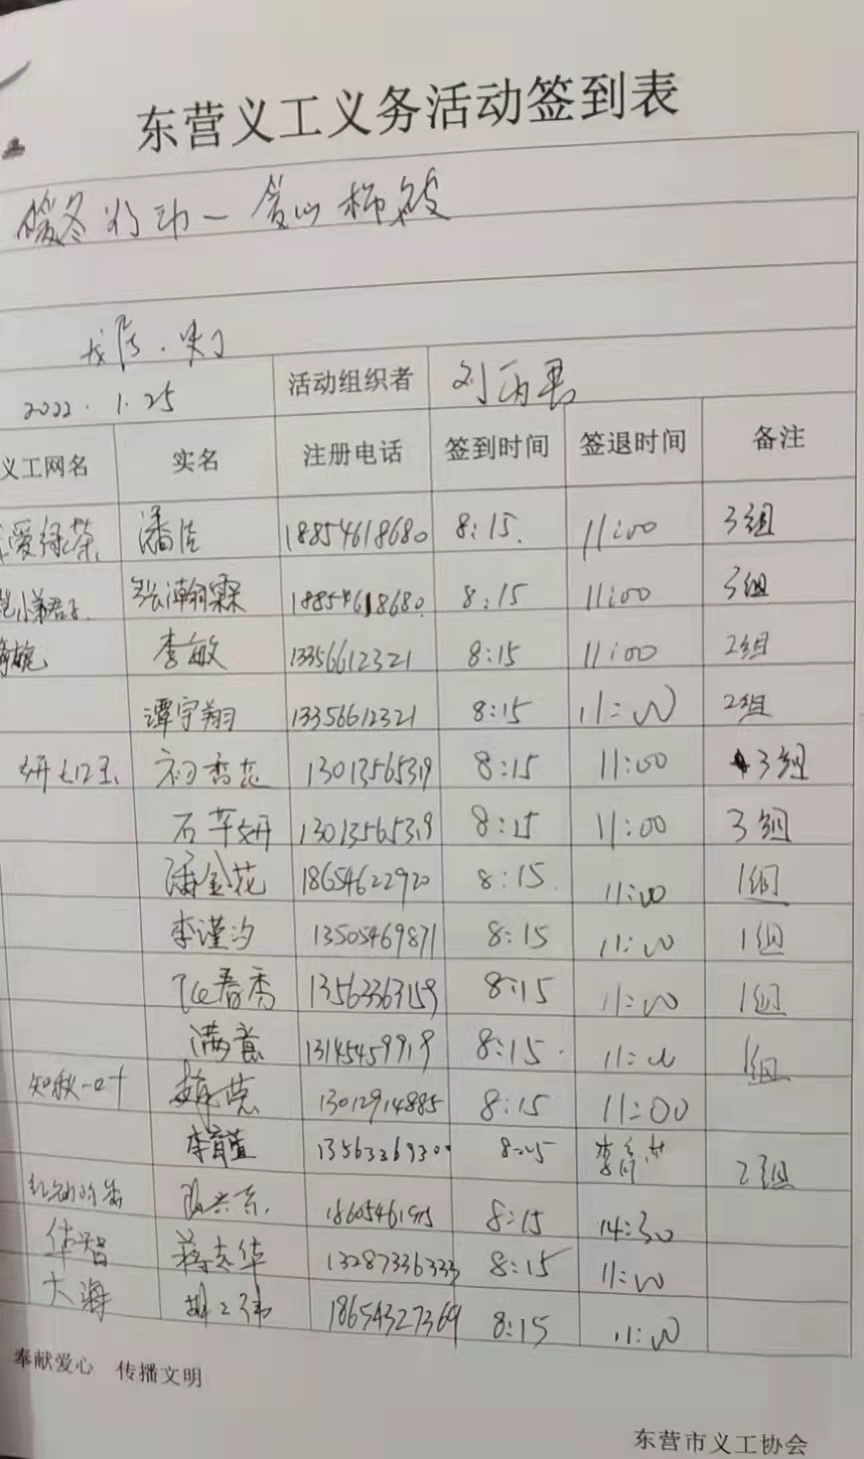 东营义工义务活动签到表
暖冬行动一爱心棉被
龙居.
2022.1.25 活动组织者 刘
义工网名 实名 注册电话 签到时间 签退时间 备注
爱绿茶 潘佳 18854618680 8:15. 11:00 3组
小弟君子 张瀚霖 18854618680. 8:15 11:00 3组
李敏 13356612321 8:15 11:00 2组
谭宇翔 13356612321 8:15 11:00 2组
初香芝 13013565319 8:15 11:00 3组
石芊妍 13013565319 8:15 11:00 3组
潘金花 18654622920 8:15. 11:00 1组
李谨汐 13505469871 8:15 11:00 1组
春香 13563363159 8:15 11:00 1组
满意 13145459919 8:15. 11:00 1组
知秋一叶 13012914885 8:15 11:00
李育萱 8:15 2组
8:15 14:30
华智 蒋志华 13287336333 8:15 11:00
大海 18654327369 8:15 11:00
奉献爱心 传播文明
东营市义工协会